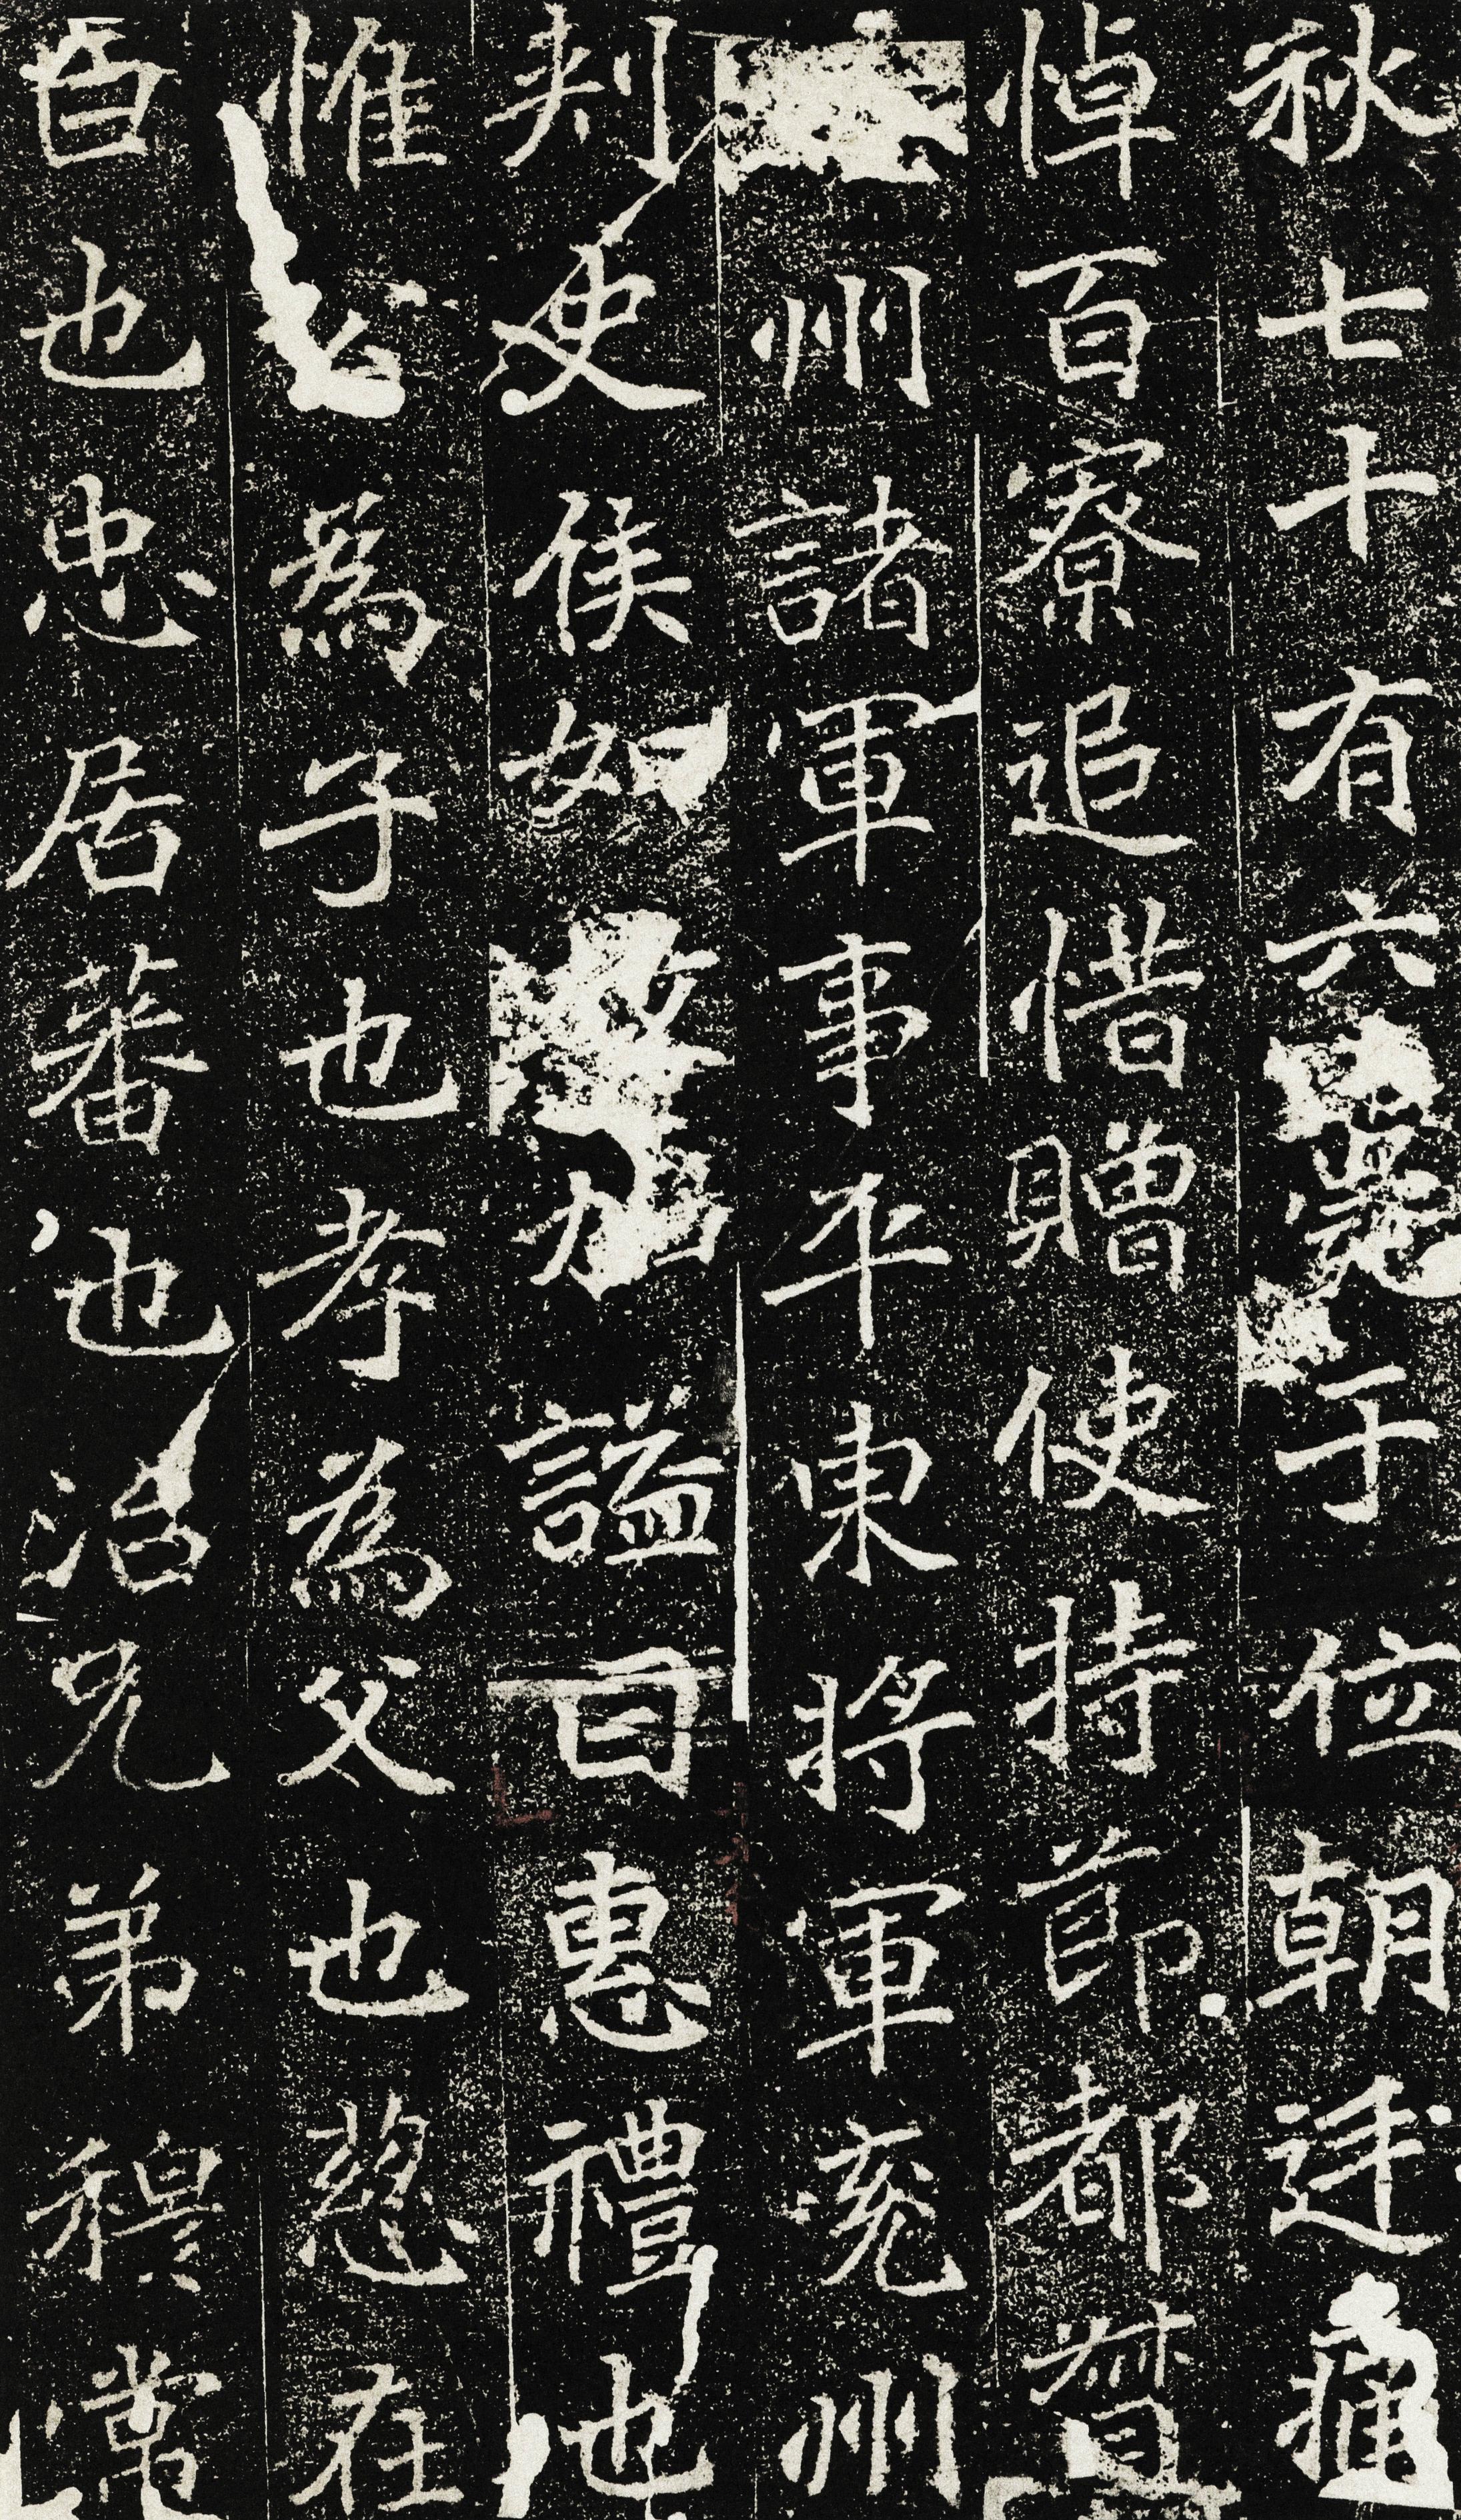 秋七十有六薨于位朝廷痛
悼百寮追惜贈使持節都督
州諸軍事平東將軍兖州
刺史侯如故加謚曰惠禮也
惟為子也孝為父也慈在
臣也忠居蕃也治兄弟穆常